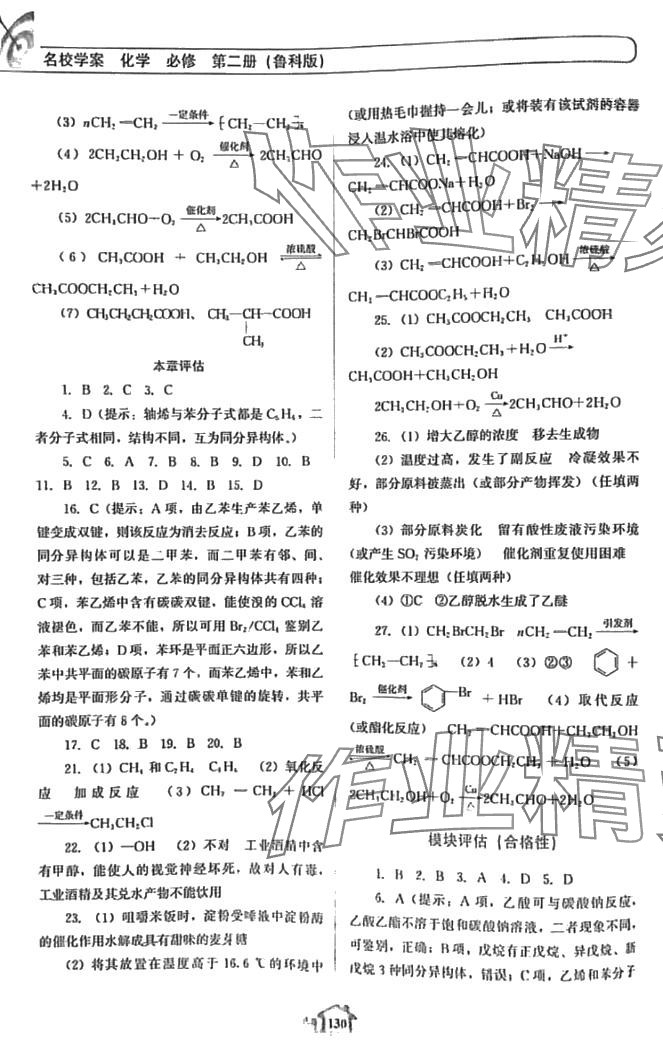 名校学案 化学 必修 第二册(鲁科版)
(3) nCH₂=CH₂ —一定条件→ [CH₂—CH₂]ₙ
(4) 2CH₃CH₂OH + O₂ —催化剂/△→ 2CH₃CHO
+2H₂O
(5) 2CH₃CHO—O₂ —催化剂/△→ 2CH₃COOH
(6) CH₃COOH + CH₃CH₂OH ⇌浓硫酸/△
CH₃COOCH₂CH₃+H₂O
(7) CH₃CH₂CH₂COOH、 CH₃—CH—COOH
CH₃
本章评估
1. B 2. C 3. C
4. D(提示:轴烯与苯分子式都是C₆H₆,二
者分子式相同,结构不同,互为同分异构体。)
5. C 6. A 7. B 8. B 9. D 10. B
11. B 12. B 13. D 14. B 15. D
16. C(提示:A项,由乙苯生产苯乙烯,单
键变成双键,则该反应为消去反应;B项,乙苯的
同分异构体可以是二甲苯,而二甲苯有邻、间、
对三种,包括乙苯,乙苯的同分异构体共有四种;
C项,苯乙烯中含有碳碳双键,能使溴的CCl₄溶
液褪色,而乙苯不能,所以可用Br₂/CCl₄鉴别乙
苯和苯乙烯;D项,苯环是平面正六边形,所以乙
苯中共平面的碳原子有7个,而苯乙烯中,苯和乙
烯均是平面形分子,通过碳碳单键的旋转,共平
面的碳原子有8个。)
17. C 18. B 19. B 20. B
21. (1) CH₄和C₂H₄ C₆H₆ (2)氧化反
应 加成反应 (3) CH₂=CH₂ + HCl
—一定条件→CH₃CH₂Cl
22. (1) —OH (2)不对 工业酒精中含
有甲醇,能使人的视觉神经坏死,故对人有毒,
工业酒精及其兑水产物不能饮用
23. (1)咀嚼米饭时,淀粉受唾液中淀粉酶
的催化作用水解成具有甜味的麦芽糖
(2)将其放置在温度高于16.6℃的环境中
(或用热毛巾握持一会儿;或将装有该试剂的容器
浸入温水溶中使其熔化)
24. (1) CH₂=CHCOOH+NaOH→
CH₂=CHCOONa+H₂O
(2) CH₂=CHCOOH+Br₂→
CH₂BrCHBrCOOH
(3) CH₂=CHCOOH+C₂H₅OH ⇌浓硫酸/△
CH₂=CHCOOC₂H₅+H₂O
25. (1) CH₃COOCH₂CH₃ CH₃COOH
(2) CH₃COOCH₂CH₃+H₂O —H⁺→
CH₃COOH+CH₃CH₂OH
2CH₃CH₂OH+O₂ —Cu/△→2CH₃CHO+2H₂O
26. (1)增大乙醇的浓度 移去生成物
(2)温度过高,发生了副反应 冷凝效果不
好,部分原料被蒸出(或部分产物挥发)(任填两
种)
(3)部分原料炭化 留有酸性废液污染环境
(或产生SO₂污染环境) 催化剂重复使用困难
催化效果不理想(任填两种)
(4)①C ②乙醇脱水生成了乙醚
27. (1) CH₂BrCH₂Br nCH₂=CH₂ —引发剂→
[CH₂—CH₂]ₙ (2) 4 (3)②③ +
Br₂ —催化剂→ —Br + HBr (4)取代反应
(或酯化反应) CH₂=CHCOOH+CH₃CH₂OH
⇌浓硫酸/△ CH₂=CHCOOCH₂CH₃ + H₂O (5)
2CH₃CH₂OH+O₂ —Cu/△→2CH₃CHO+2H₂O
模块评估(合格性)
1. B 2. B 3. A 4. D 5. D
6. A(提示:A项,乙酸可与碳酸钠反应,
乙酸乙酯不溶于饱和碳酸钠溶液,二者现象不同,
可鉴别,正确;B项,戊烷有正戊烷、异戊烷、新
戊烷3种同分异构体,错误;C项,乙烯和苯分子
130
作业精
作业精